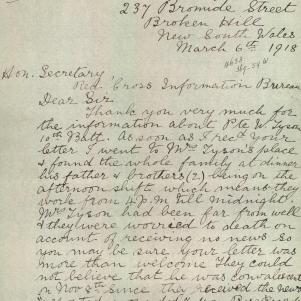 237 Bromide Street
Broken Hill
New South Wales
March 6th 1918
Hon. Secretary
Red Cross Information Bureau
Dear Sir
Thank you very much for
the information about Pte W. Tyson
10th Batt. As soon as I rec'd your
letter I went to Mrs Tyson's place
& found the whole family at dinner
his father & brothers (2) being on the
afternoon shift which means they
work from 4 P.M. till midnight.
Mrs Tyson had been far from well
& they were worried to death on
account of receiving no news so
you may be sure your letter was
more than welcome. They could
not believe that he was convalescent
on Nov 8th since they received the news